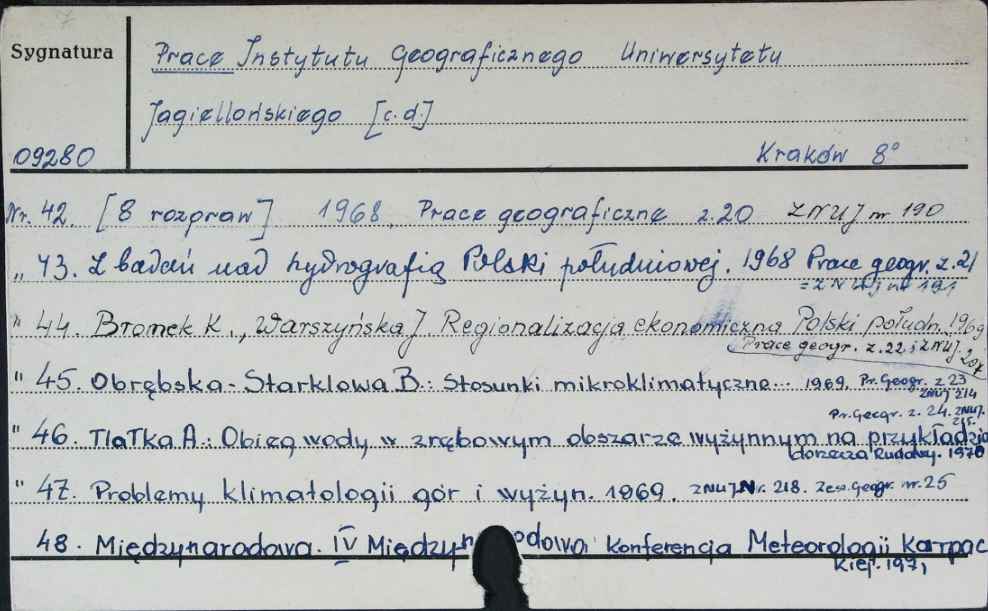 Sygnatura
Prace Instytutu Geograficznego Uniwersytetu
Jagiellońskiego [c.d.]
09280
Kraków 8°
Nr. 42. [8 rozpraw] 1968. Prace geograficzne z.20 ZNUJ nr 190
„ 43. Z badań nad hydrografią Polski południowej. 1968 Prace geogr. z.21
= ZNUJ nr 191
" 44. Bromek K., Warszyńska J. Regionalizacja ekonomiczna Polski połudn. 1969
Prace geogr. z.22; ZNUJ.
" 45. Obrębska-Starklowa B.: Stosunki mikroklimatyczne... 1969. Pr. Geogr. z 23
ZNUJ 214
Pr. Geogr. z. 24. ZNUJ.
215.
" 46. Tlatka A.: Obieg wody w zrębowym obszarze wyżynnym na przykładzie
dorzecza Rudawy. 1970
" 47. Problemy klimatologii gór i wyżyn. 1969. ZNUJ Nr. 218. Zesz. Geogr. nr. 25
48. Międzynarodowa. IV Międzynarodowa Konferencja Meteorologii Karpac
Kiej. 1971